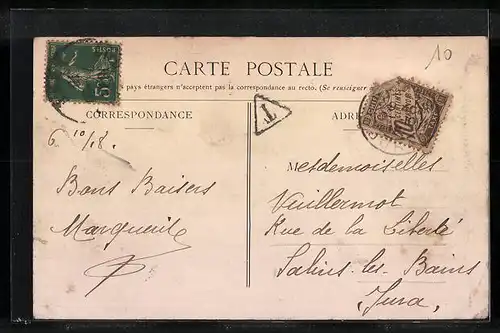 10
CARTE POSTALE
pays étrangers n'acceptent pas la correspondance au recto. (Se renseigner
CORRESPONDANCE
ADRE
T
6 10/8.
Bons Baisers
Marguerite
Mesdemoiselles
Vuillermot
Rue de la Liberté
Salins-les-Bains
Jura,